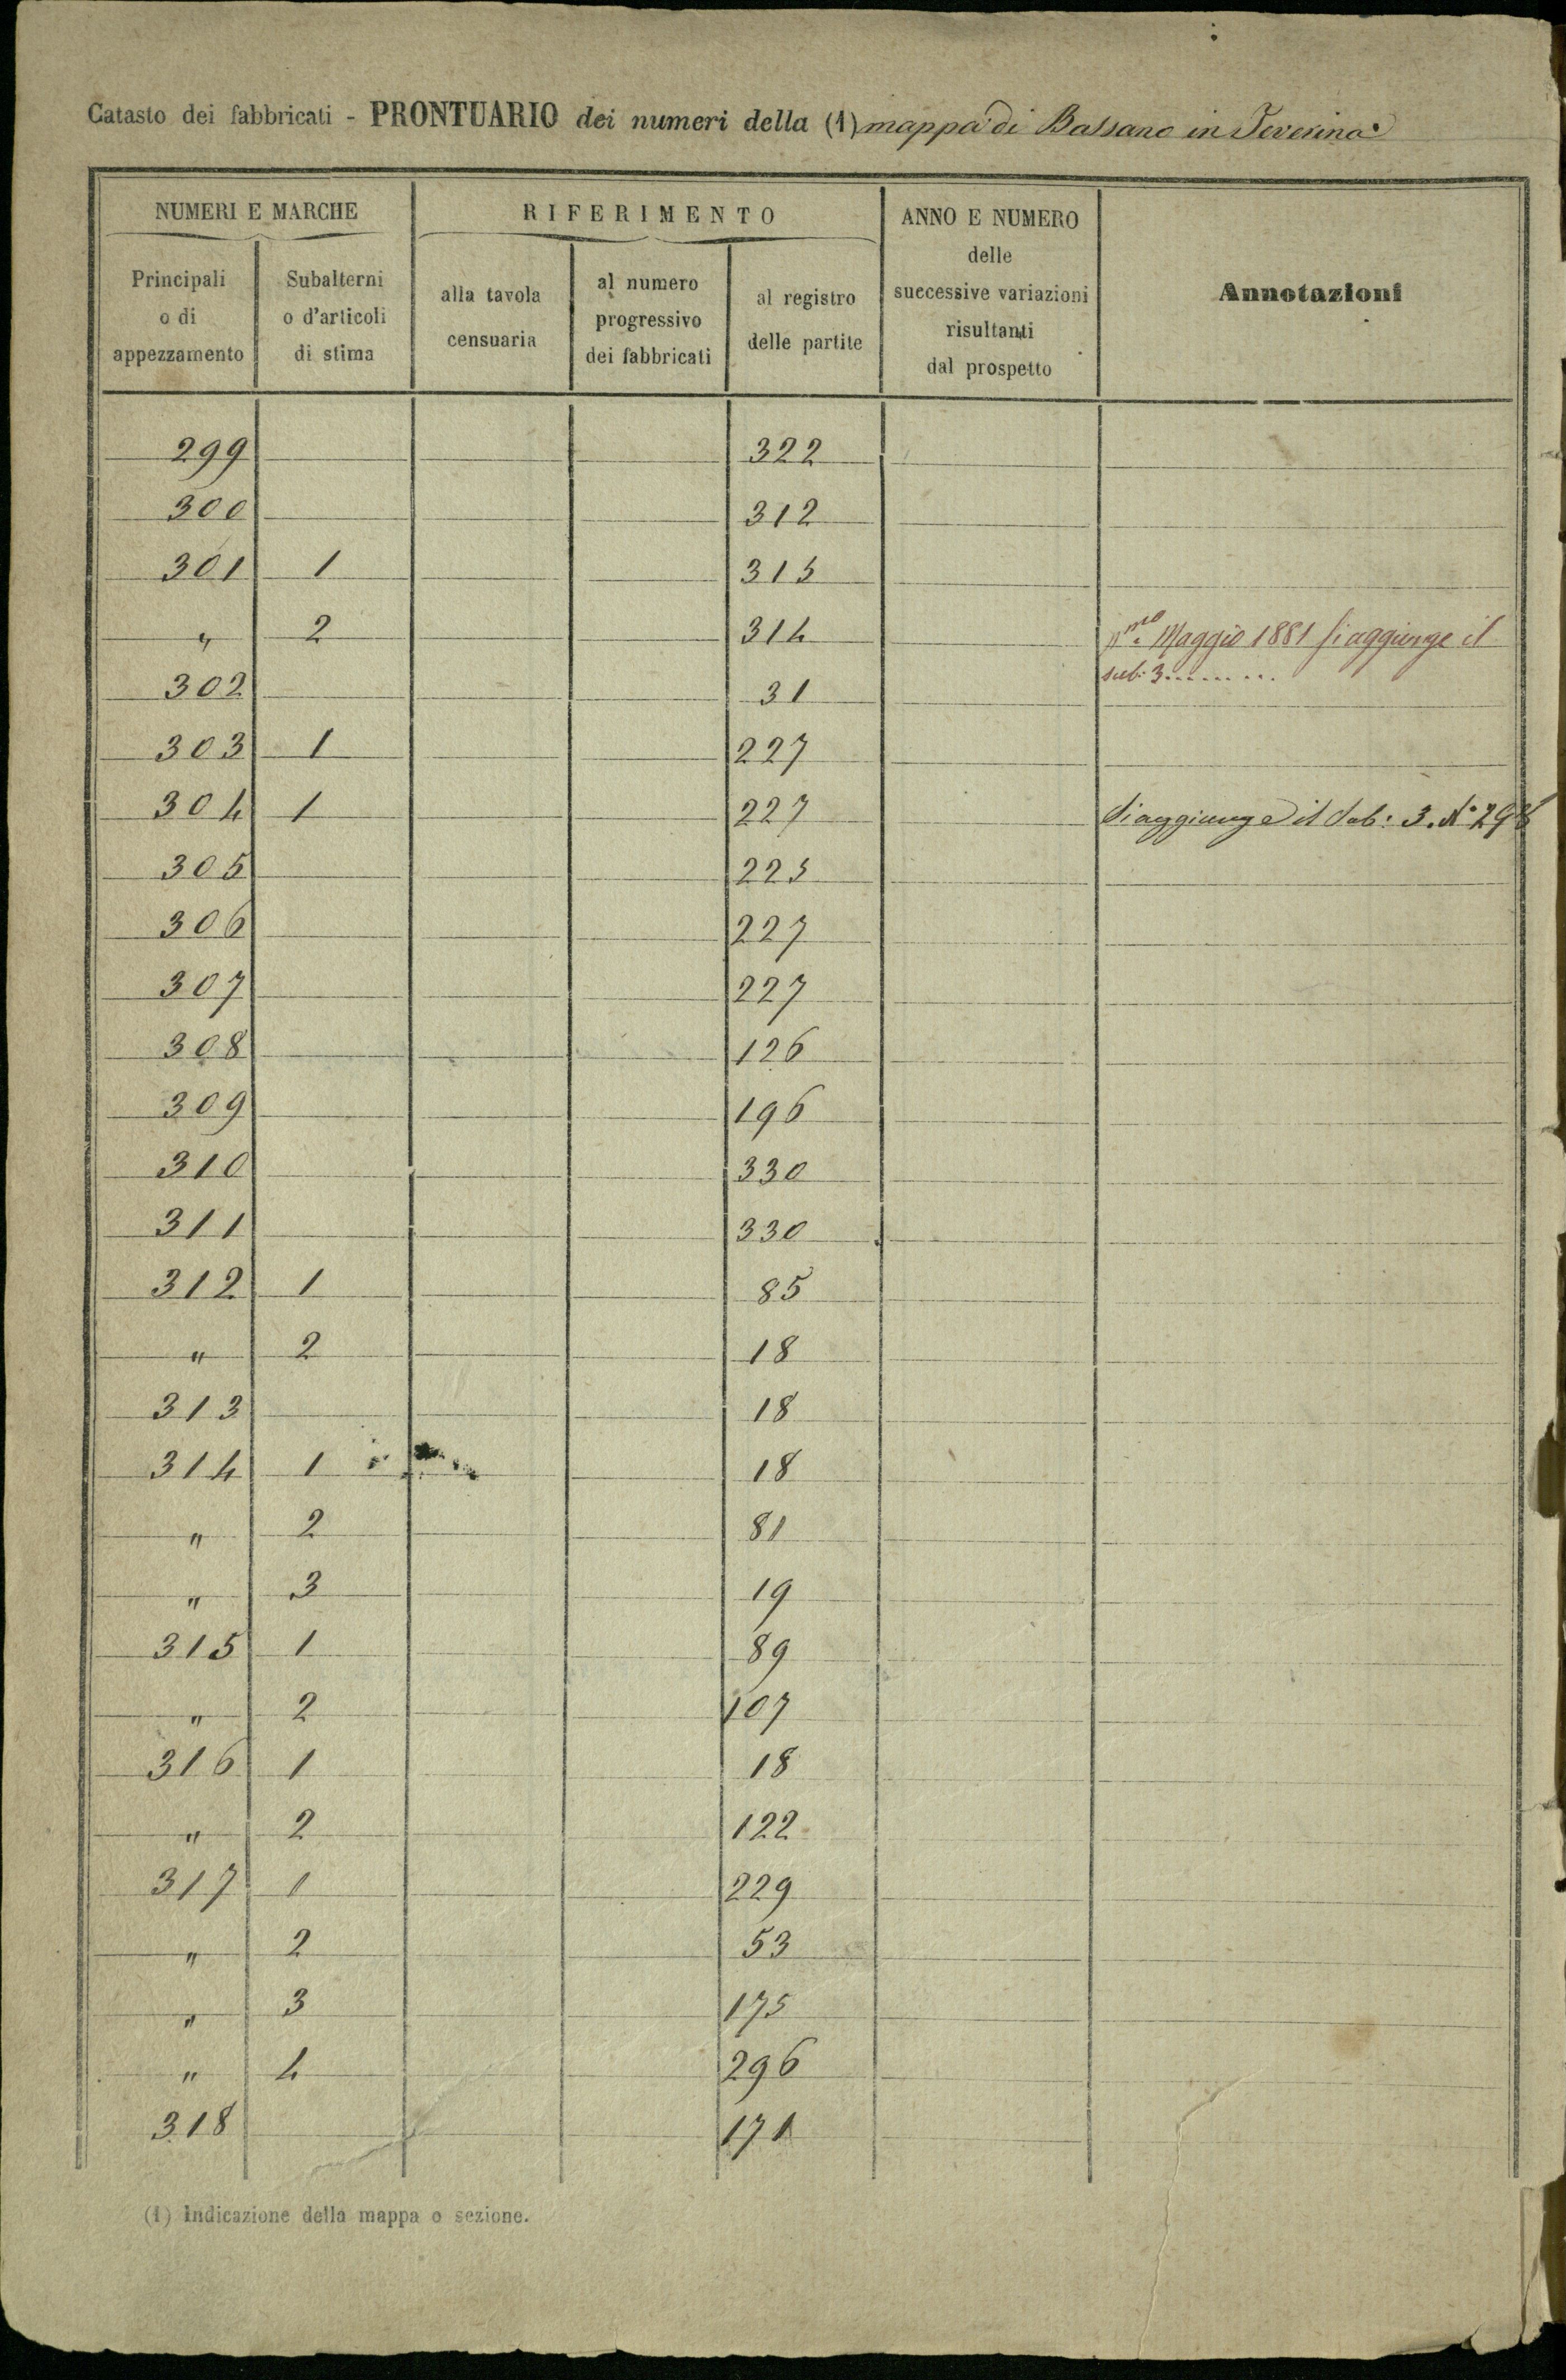 Catasto dei fabbricati - PRONTUARIO dei numeri della (1) mappa di Bassano in Teverina
NUMERI E MARCHE
RIFERIMENTO
ANNO E NUMERO
delle
successive variazioni
risultanti
dal prospetto
Annotazioni
Principali
o di
appezzamento
Subalterni
o d'articoli
di stima
alla tavola
censuaria
al numero
progressivo
dei fabbricati
al registro
delle partite
299 322
300 312
301 1 315
" 2 314 Maggio 1881 Si aggiunge il
sub: 3.........
302 31
303 1 227
304 1 227 Si aggiunge il Sub: 3. N° 298
305 225
306 227
307 227
308 126
309 196
310 330
311 330
312 1 85
" 2 18
313 18
314 1 18
" 2 81
" 3 19
315 1 89
" 2 107
316 1 18
" 2 122
317 1 229
" 2 53
" 3 175
" 4 296
318 171
(1) Indicazione della mappa o sezione.